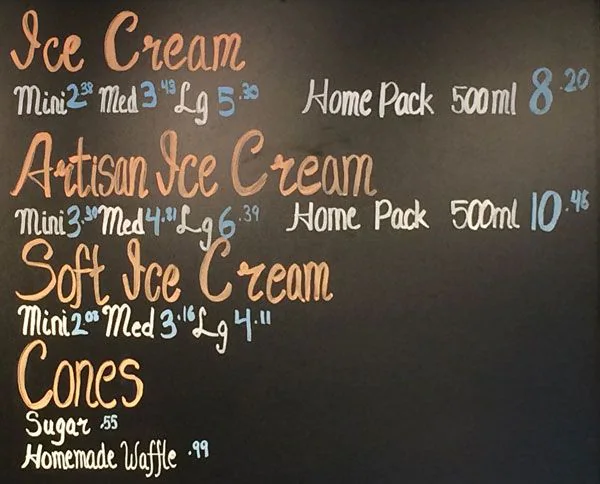 Ice Cream
Mini 2.38 Med 3.43 Lg 5.30 Home Pack 500ml 8.20
Artisan Ice Cream
Mini 3.30 Med 4.81 Lg 6.39 Home Pack 500ml 10.46
Soft Ice Cream
Mini 2.08 Med 3.16 Lg 4.11
Cones
Sugar .55
Homemade Waffle .99